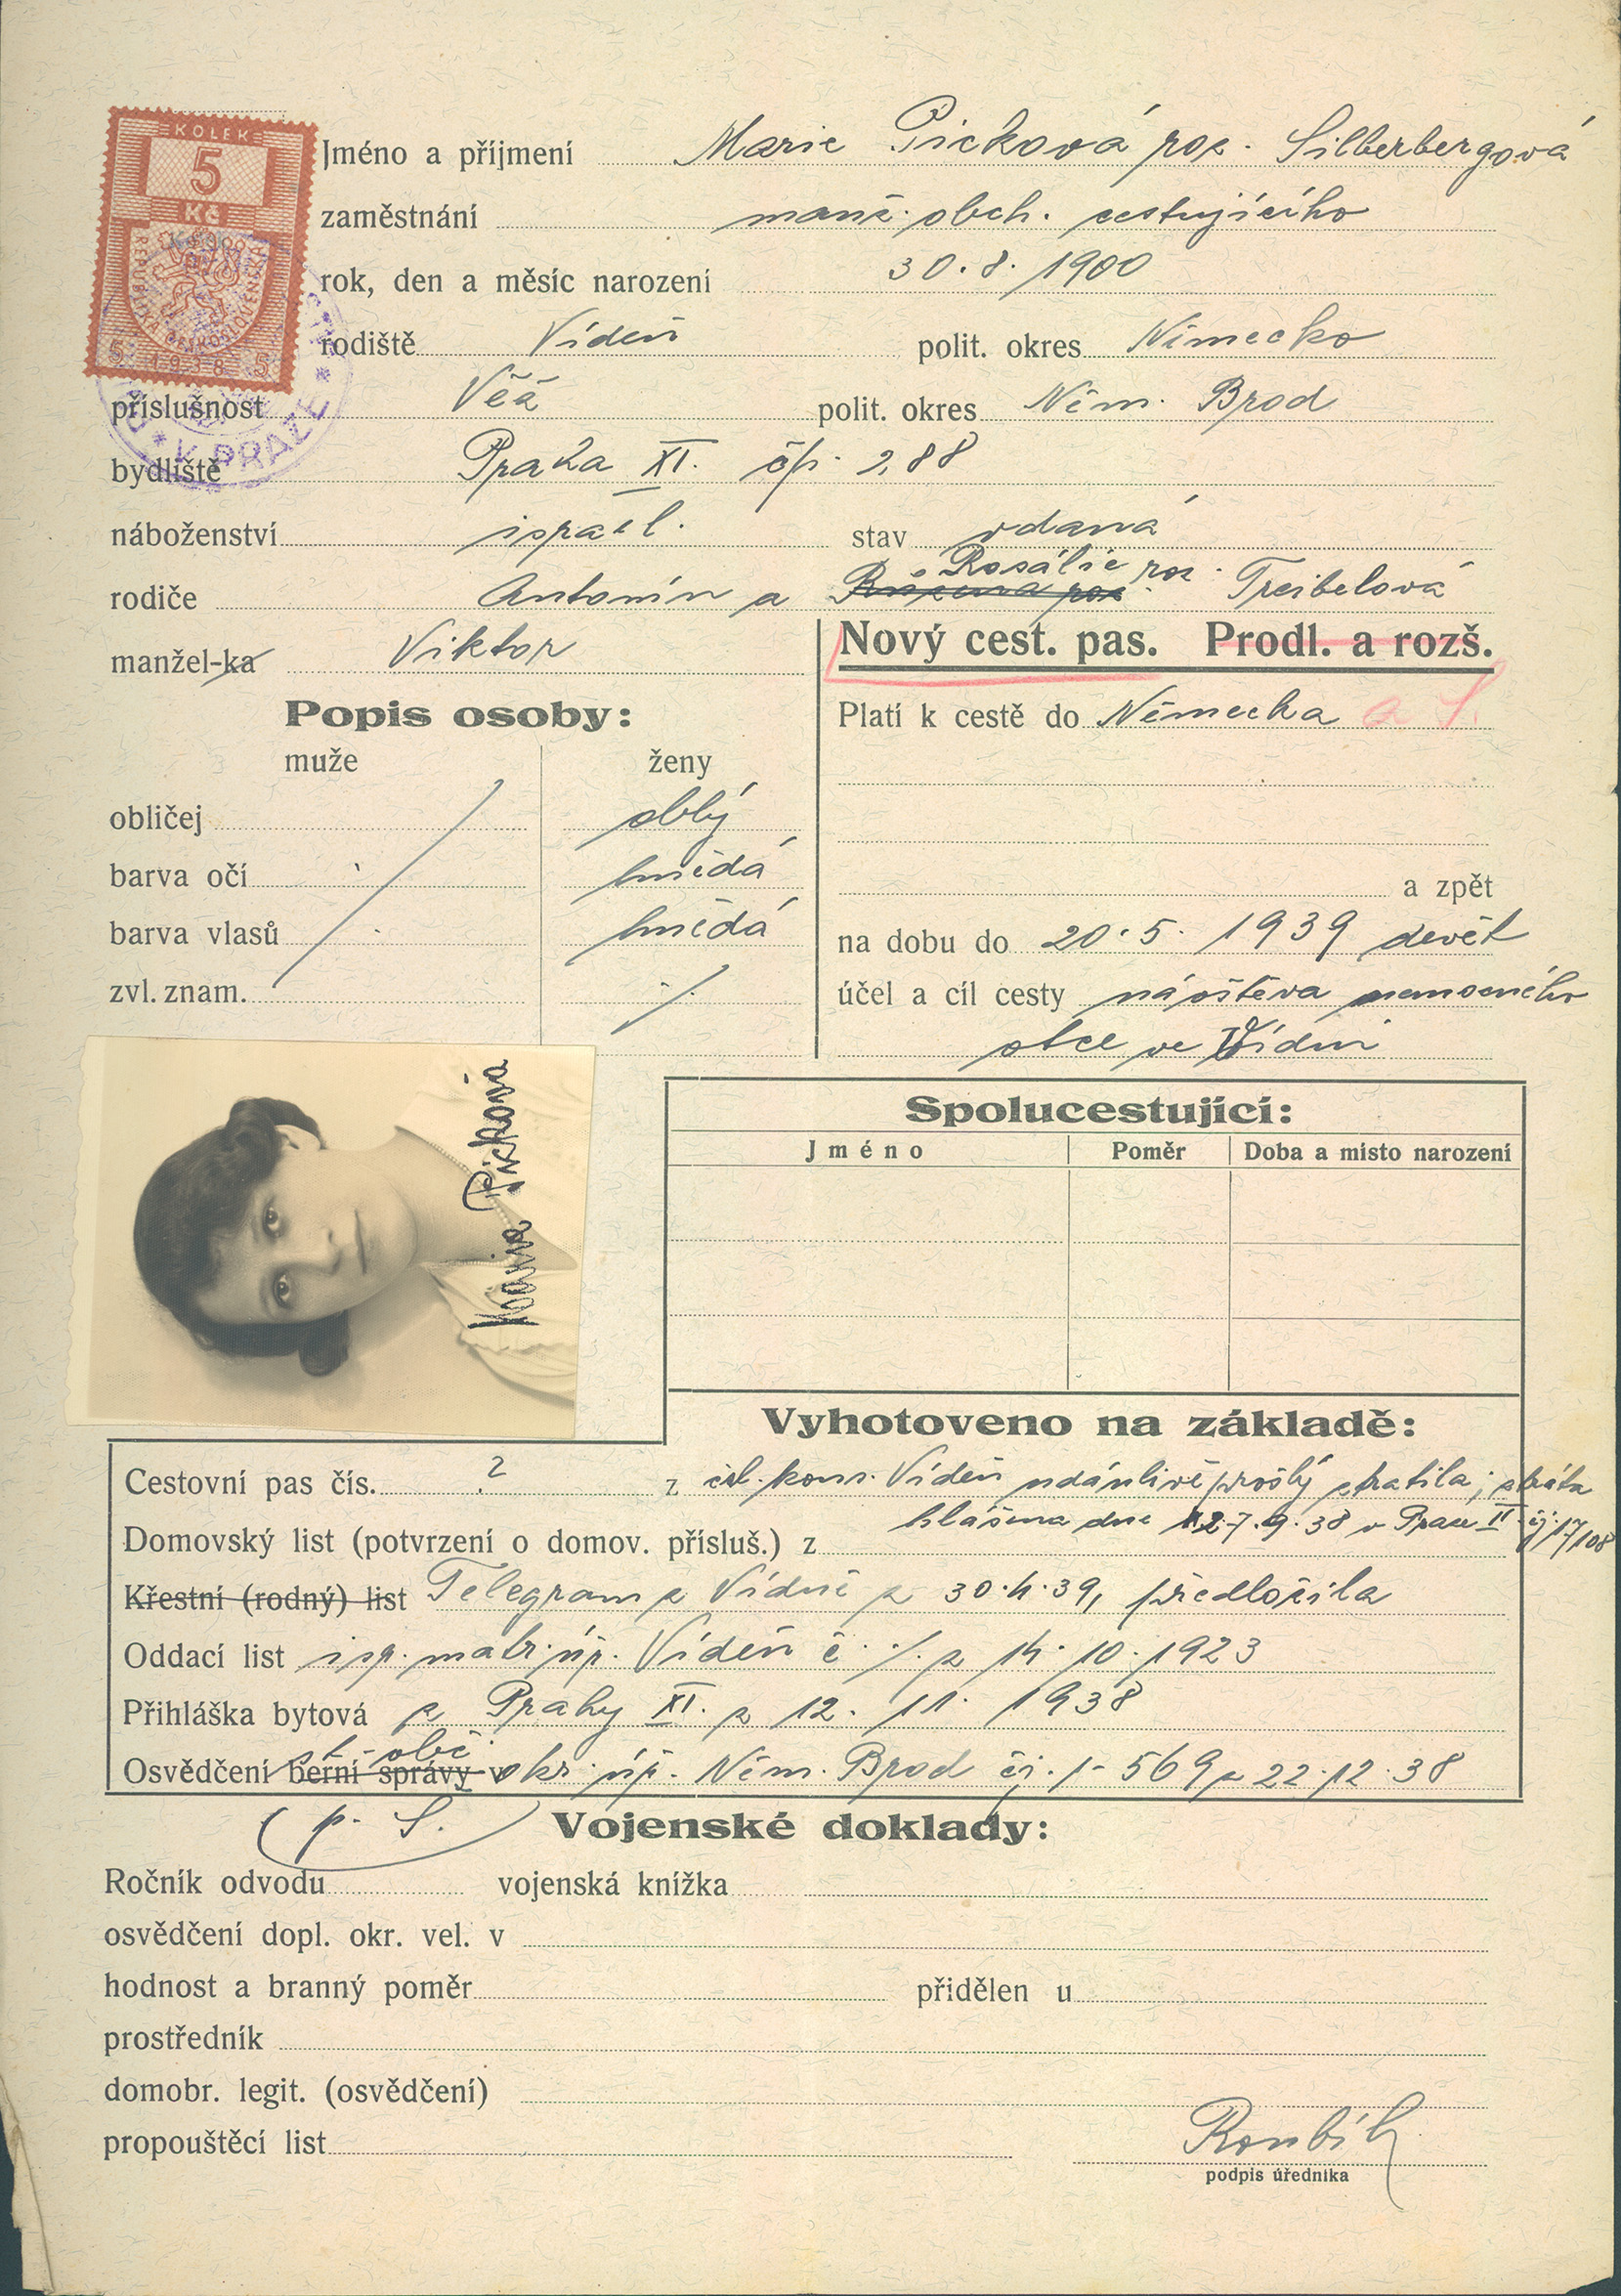 KOLEK
5
Kč
REPUBLIKA ČESKOSLOVENSKÁ
5 1938 5
K PRAZE
Jméno a příjmení Marie Picková roz. Silberbergová
zaměstnání manž. obch. cestujícího
rok, den a měsíc narození 30. 8. 1900
rodiště Vídeň polit. okres Německo
příslušnost Věž polit. okres Něm. Brod
bydliště Praha XI. čp. 288
náboženství israel. stav vdaná
Rosálie roz.
rodiče Antonín a Růžena roz. Treibelová
manžel-ka Viktor
Nový cest. pas. Prodl. a rozš.
Popis osoby:
muže ženy
obličej oblý
barva očí hnědá
barva vlasů hnědá
zvl. znam. ./.
Platí k cestě do Německa a S.
a zpět
na dobu do 20. 5. 1939 devět
účel a cíl cesty návštěva nemocného
otce ve Vídni
Marie Picková
Spolucestující:
Jméno Poměr Doba a místo narození
Vyhotoveno na základě:
Cestovní pas čís. ? z čsl. kons. Vídeň udánlivě prošlý ztratila; ztráta
Domovský list (potvrzení o domov. přísluš.) z hlášena dne 27. 9. 38 v Praze II čj. 17/108
Křestní (rodný) list Telegram z Vídně z 30. 4. 39, předložila
Oddací list isr. matr. úř. Vídeň č. ./. z 14. 10. 1923
Přihláška bytová z Prahy XI. z 12. 11. 1938
st. obč.
Osvědčení berní správy v okr. úř. Něm. Brod čj. 1-569 z 22. 12. 38
(p. S.)
Vojenské doklady:
Ročník odvodu vojenská knížka
osvědčení dopl. okr. vel. v
hodnost a branný poměr přidělen u
prostředník
domobr. legit. (osvědčení)
propouštěcí list
Roubík
podpis úředníka